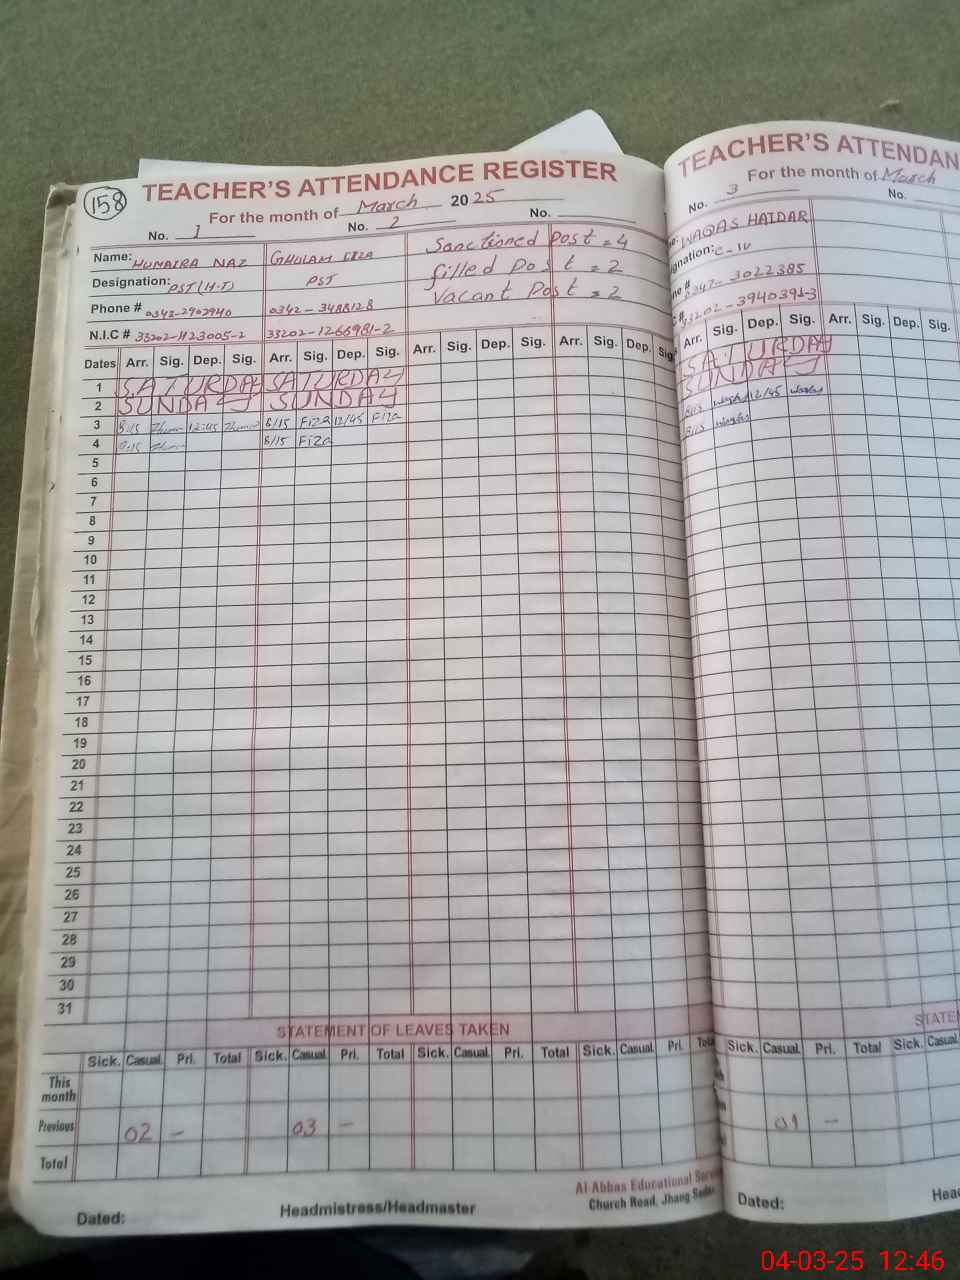 158
TEACHER'S ATTENDANCE REGISTER
For the month of March 2025
No. 1 No. 2 No.
Name: HUMAIRA NAZ GHULAM FIZA Sanctioned Post = 4
Designation: PST(H.T) PST filled Post = 2
Phone # 0342-2902940 0342-3488128 Vacant Post = 2
N.I.C # 33202-1123005-2 33202-1266981-2
Dates Arr. Sig. Dep. Sig. Arr. Sig. Dep. Sig. Arr. Sig. Dep. Sig. Arr. Sig. Dep. Sig
1 SATURDAY SATURDAY
2 SUNDAY SUNDAY
3 8:15 12:45 8/15 Fiza 12/45 Fiza
4 8:15 8/15 Fiza
5
6
7
8
9
10
11
12
13
14
15
16
17
18
19
20
21
22
23
24
25
26
27
28
29
30
31
STATEMENT OF LEAVES TAKEN
Sick. Casual Pri. Total Sick. Casual Pri. Total Sick. Casual Pri. Total Sick. Casual Pri. Tota
This month
Previous 02 - 03 -
Total
Al-Abbas Educational Serv
Church Road, Jhang Sadar
Dated: Headmistress/Headmaster
TEACHER'S ATTENDAN
For the month of March
No. 3 No.
WAQAS HAIDAR
gnation: C-IV
ne # 0347-3022385
33202-3940391-3
Arr. Sig. Dep. Sig. Arr. Sig. Dep. Sig.
SATURDAY
SUNDAY
8/15 waqas 12/45 waqas
8/15 waqas
STATE
Sick. Casual Pri. Total Sick. Casual
01 -
Dated: Head
04-03-25 12:46